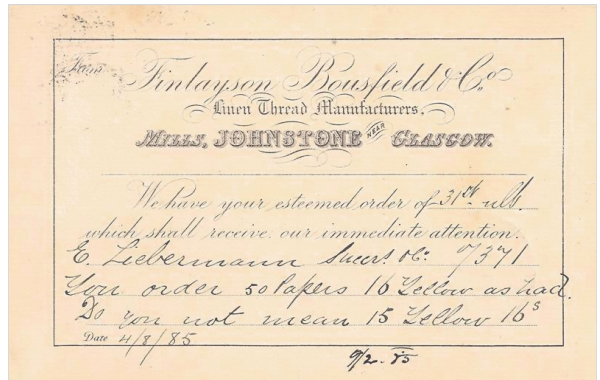 From
Finlayson Bousfield & Co.
Linen Thread Manufacturers.
MILLS, JOHNSTONE NEAR GLASGOW.
We have your esteemed order of 31st ult.
which shall receive our immediate attention.
E. Liebermann 7371
You order 50 Papers 16 Yellow as had.
Do you not mean 15 Yellow 16s
Date 4/8/85